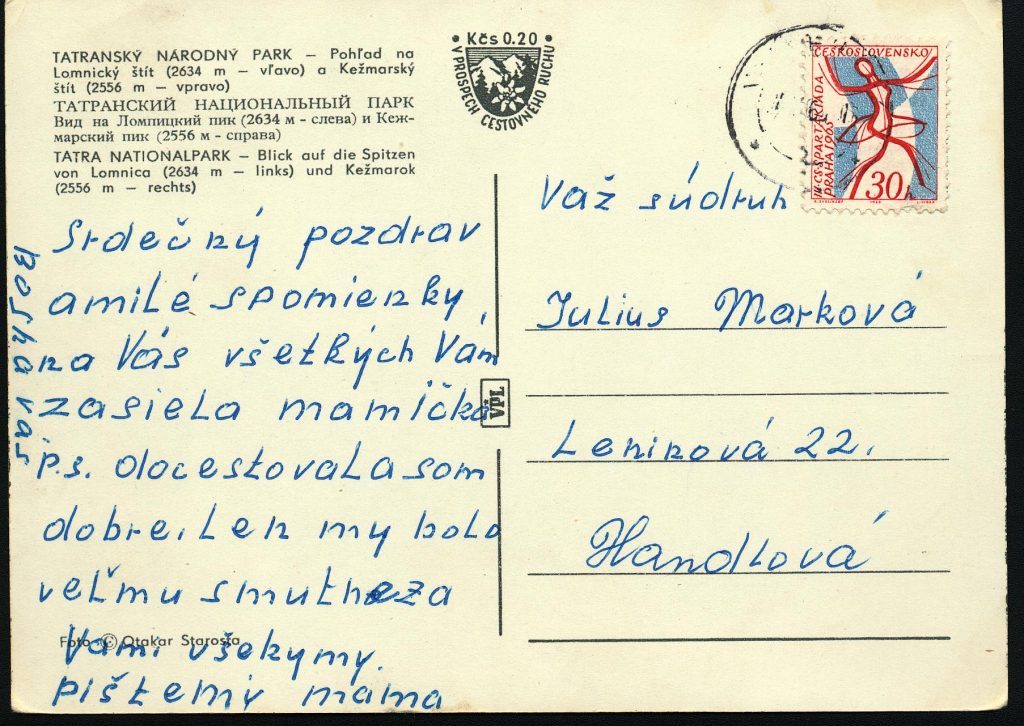 TATRANSKÝ NÁRODNÝ PARK – Pohľad na
Lomnický štít (2634 m – vľavo) a Kežmarský
štít (2556 m – vpravo)
ТАТРАНСКИЙ НАЦИОНАЛЬНЫЙ ПАРК
Вид на Ломпицкий пик (2634 м - слева) и Кеж-
марский пик (2556 м - справа)
TATRA NATIONALPARK – Blick auf die Spitzen
von Lomnica (2634 m – links) und Kežmarok
(2556 m – rechts)
Kčs 0.20
V PROSPECH CESTOVNÉHO RUCHU
ČESKOSLOVENSKO
III CS SPARTAKIÁDA
PRAHA 1965
30 h
Srdečný pozdrav
a milé spomienky
na Vás všetkých Vám
zasiela mamička
p.s. docestovala som
dobre, len my bolo
veľmu smutno za
Vámi všekymy.
pištemy mama
Boská vás
Foto © Otakar Starosta
VPL
Važ súdruh
Julius Marková
Leninová 22.
Handlová